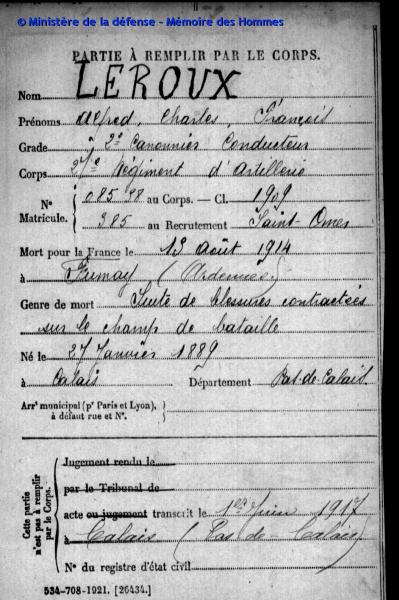 © Ministère de la défense - Mémoire des Hommes
PARTIE À REMPLIR PAR LE CORPS.
Nom LEROUX
Prénoms Alfred, Charles, François
Grade 2e Canonnier Conducteur
Corps 27e Régiment d'Artillerie
N° Matricule. { 08598 au Corps. — Cl. 1909
385 au Recrutement Saint-Omer
Mort pour la France le 13 Août 1914
à Fumay (Ardennes)
Genre de mort Suite de blessures contractées
sur le champ de bataille
Né le 27 Janvier 1889
à Calais Département Pas-de-Calais.
Arrt municipal (pr Paris et Lyon), à défaut rue et N°. }
Cette partie n'est pas à remplir par le Corps.
Jugement rendu le
par le Tribunal de
acte ou jugement transcrit le 1er Juin 1917
à Calais (Pas-de-Calais)
N° du registre d'état civil
534-708-1921. [26434.]